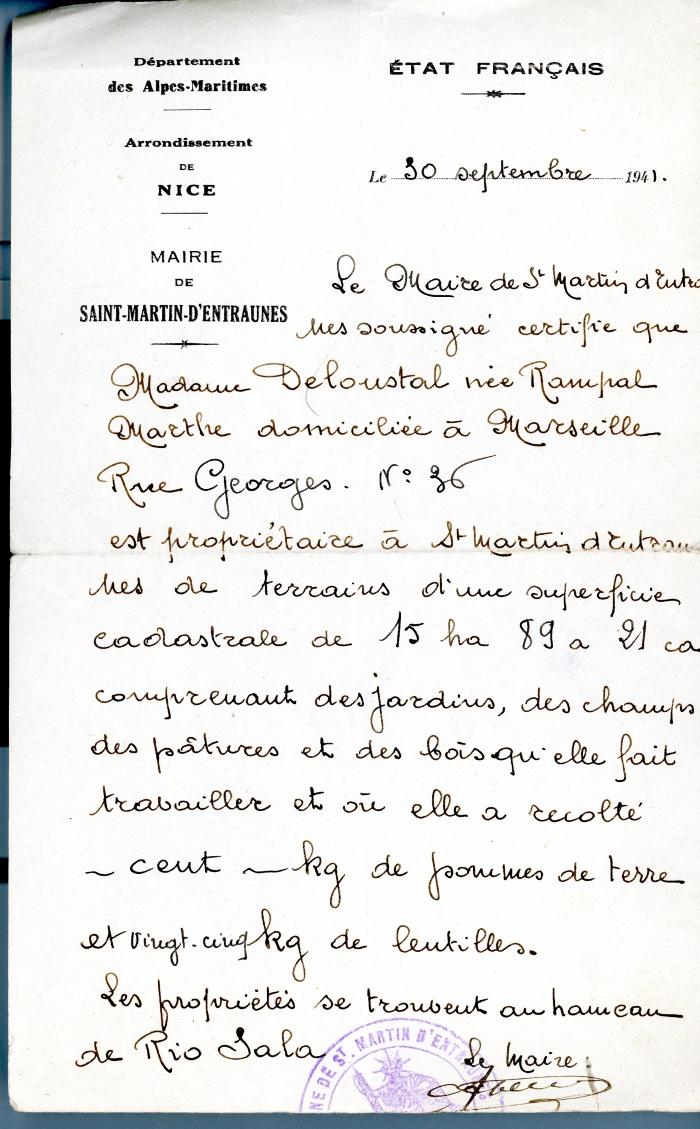 Département
des Alpes-Maritimes
Arrondissement
DE
NICE
MAIRIE
DE
SAINT-MARTIN-D'ENTRAUNES
ÉTAT FRANÇAIS
Le 30 septembre 1941.
Le Maire de St Martin d'Entrau
nes soussigné certifie que
Madame Deloustal née Rampal
Marthe domiciliée à Marseille
Rue Georges. N° 36
est propriétaire à St Martin d'Entrau
nes de terrains d'une superficie
cadastrale de 15 ha 89 a 21 ca
comprenant des jardins, des champs
des pâtures et des bois qu'elle fait
travailler et où elle a recolté
~ cent ~ kg de pommes de terre
et vingt-cinq kg de lentilles.
Les propriétés se trouvent au hameau
de Rio Sala
Le Maire
NE DE ST. MARTIN D'ENTRAU